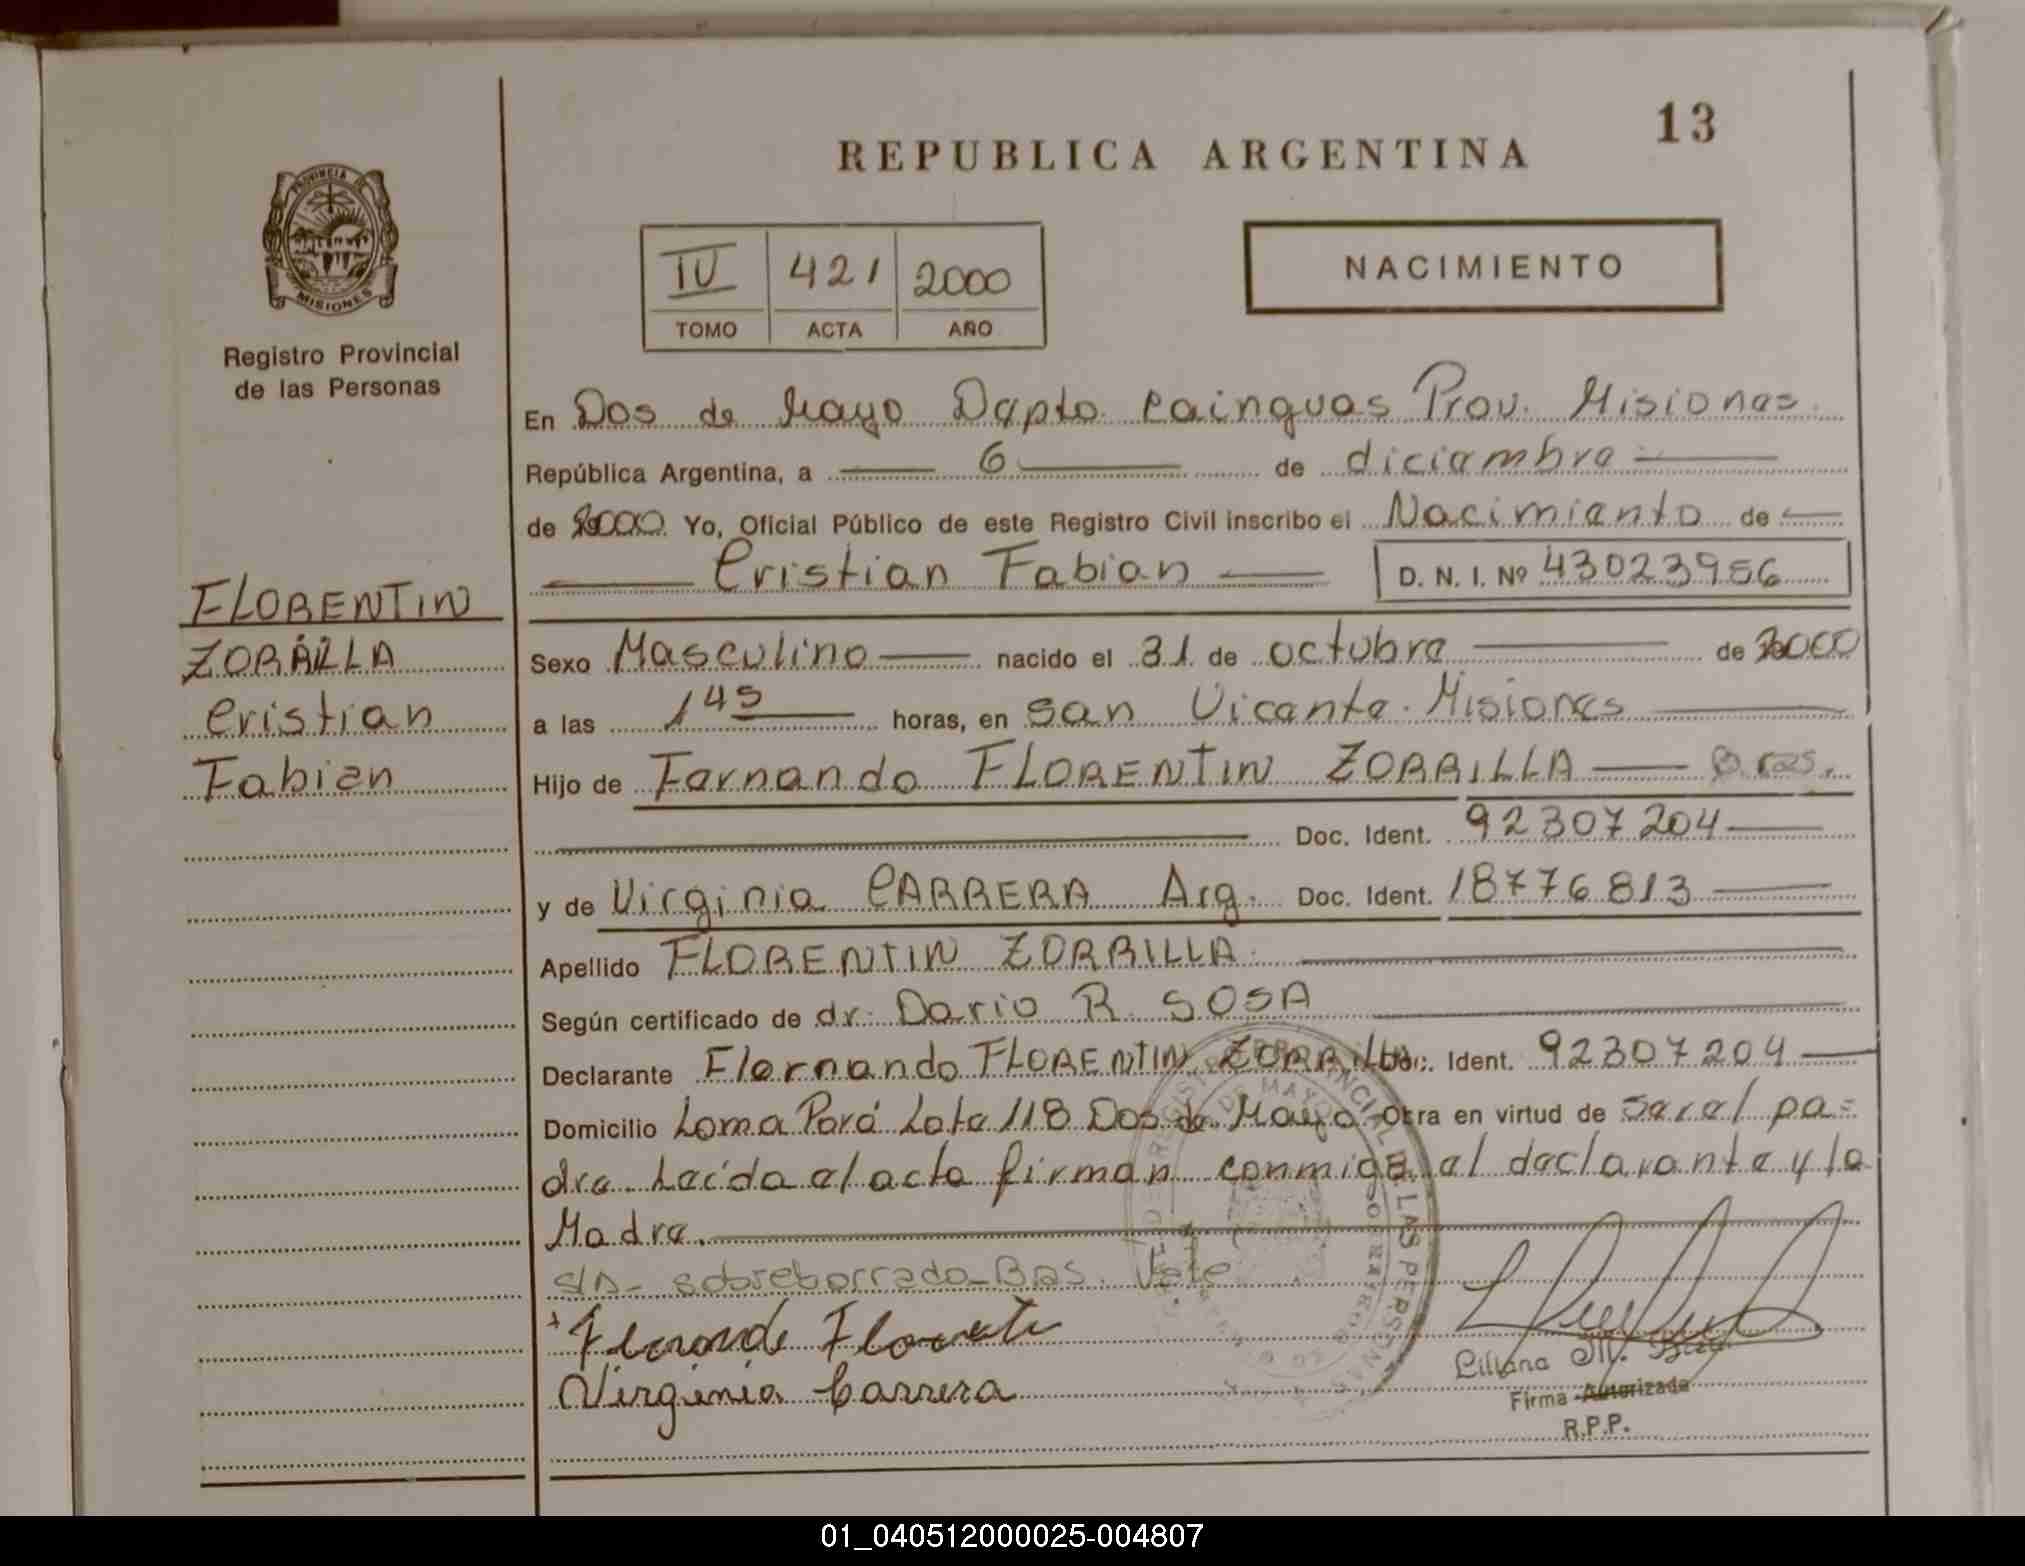 13
REPUBLICA ARGENTINA
PROVINCIA DE
MISIONES
Registro Provincial
de las Personas
IV 421 2000
TOMO ACTA AÑO
NACIMIENTO
En Dos de Mayo Dpto. Cainguas Prov. Misiones.
República Argentina, a 6 de diciembre
de 2000 Yo, Oficial Público de este Registro Civil inscribo el Nacimiento de
Cristian Fabian D. N. I. Nº 43023956
FLORENTIN
ZORRILLA
Cristian
Fabian
Sexo Masculino nacido el 31 de octubre de 2000
a las 1 45 horas, en San Vicente. Misiones
Hijo de Fernando FLORENTIN ZORRILLA Bras.
Doc. Ident. 92307204
y de Virginia CARRERA Arg. Doc. Ident. 18776813
Apellido FLORENTIN ZORRILLA.
Según certificado de dr. Dario R. SOSA
Declarante Flernando FLORENTIN ZORRILLA Doc. Ident. 92307204
Domicilio Loma Porá Lote 118 Dos de Mayo Obra en virtud de ser el pa=
dre. Leída el acta firman conmigo el declarante y la
Madre.
S/A- sobreborrado-Bas. Vale
Virginia Carrera
REGISTRO PROVINCIAL DE LAS PERSONAS
DOS DE MAYO
Liliana M.
Firma Autorizada
R.P.P.
01_040512000025-004807